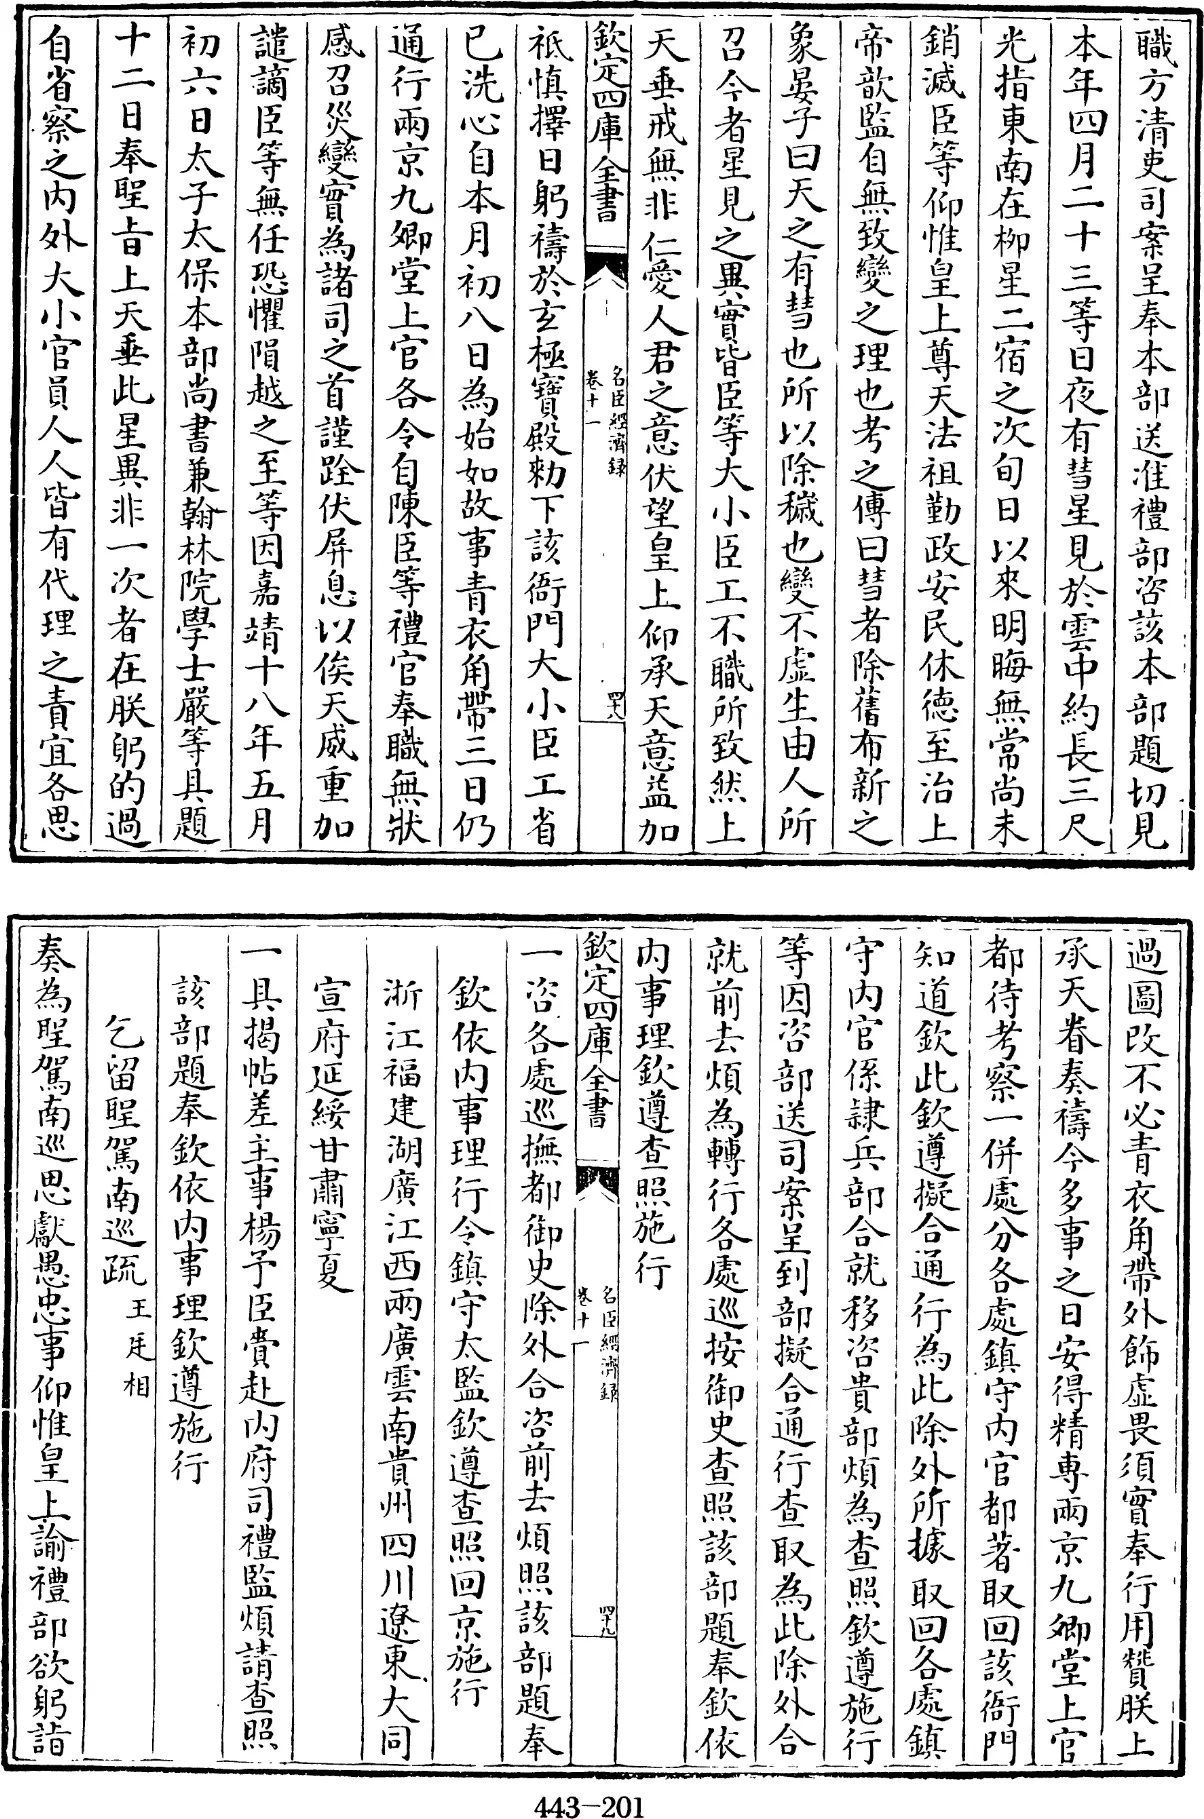 職方清吏司案呈奉本部送准禮部咨該本部題切見
本年四月二十三等日夜有彗星見於雲中約長三尺
光指東南在柳星二宿之次旬日以來明晦無常尚未
銷滅臣等仰惟皇上尊天法祖勤政安民休德至治上
帝歆監自無致變之理也考之傳曰彗者除舊布新之
象晏子曰天之有彗也所以除穢也變不虛生由人所
召今者星見之異實皆臣等大小臣工不職所致然上
天垂戒無非仁愛人君之意伏望皇上仰承天意益加
欽定四庫全書
名臣經濟録
卷十一
四十八
祗慎擇日躬禱於玄極寶殿勅下該衙門大小臣工省
已洗心自本月初八日為始如故事青衣角帶三日仍
通行兩京九卿堂上官各令自陳臣等禮官奉職無狀
感召災變實為諸司之首謹跧伏屏息以俟天威重加
譴謫臣等無任恐懼隕越之至等因嘉靖十八年五月
初六日太子太保本部尚書兼翰林院學士嚴等具題
十二日奉聖旨上天垂此星異非一次者在朕躬的過
自省察之内外大小官員人人皆有代理之責宜各思
過圖改不必青衣角帶外飾虛畏須實奉行用贊朕上
承天眷奏禱今多事之日安得精專兩京九卿堂上官
都待考察一併處分各處鎮守内官都著取回該衙門
知道欽此欽遵擬合通行為此除外所據取回各處鎮
守内官係隸兵部合就移咨貴部煩為查照欽遵施行
等因咨部送司案呈到部擬合通行查取為此除外合
就前去煩為轉行各處巡按御史查照該部題奉欽依
内事理欽遵查照施行
欽定四庫全書
名臣經濟録
卷十一
四十九
一咨各處巡撫都御史除外合咨前去煩照該部題奉
欽依内事理行令鎮守太監欽遵查照回京施行
浙江福建湖廣江西兩廣雲南貴州四川遼東大同
宣府延綏甘肅寧夏
一具揭帖差主事楊予臣賫赴内府司禮監煩請查照
該部題奉欽依内事理欽遵施行
乞留聖駕南巡疏 王廷相
奏為聖駕南巡思獻愚忠事仰惟皇上諭禮部欲躬詣
443-201